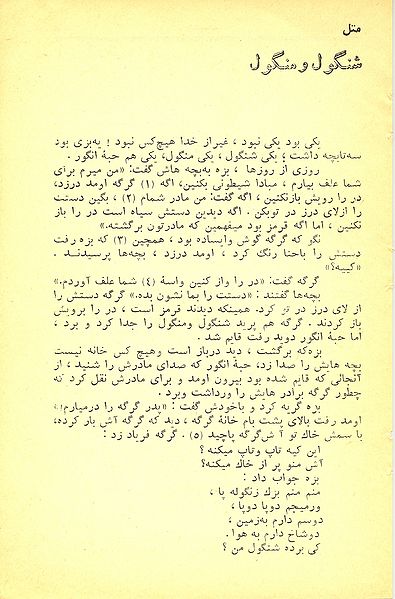 متل
شنگول و منگول
یکی بود یکی نبود ، غیر از خدا هیچکس نبود ! یه‌بزی بود
سه‌تا بچه داشت ؛ یکی شنگول ، یکی منگول ، یکی هم حبهٔ انگور .
روزی از روزها ، بزه به‌بچه هاش گفت: «من میرم برای
شما علف بیارم ، مبادا شیطونی بکنین، اگه (۱) گرگه اومد درزد،
در را رویش بازنکنین ، اگه گفت: من مادر شمام (۲) ، بگین دستت
را ازلای درز در توبکن . اگه دیدین دستش سیاه است در را باز
نکنین ، اما اگه قرمز بود میفهمین که مادرتون برگشته.»
نگو که گرگه گوش وایساده بود ، همچین (۳) که بزه رفت
دستش را باحنا رنگ کرد ، اومد درزد ، بچه‌ها پرسیدنـد .
«کییه؟»
گرگه گفت: «در را واز کنین واسهٔ (۴) شما علف آوردم.»
بچه‌ها گفتند : «دستت را بما نشون بده.» گرگه دستش را
از لای درز در تو کرد. همینکه دیدند قرمز است ، در را برویش
باز کردند . گرگه هم پرید شنگول ومنگول را جدا کرد و برد ،
اما حبهٔ انگور دوید رفت قایم شد .
بزه‌که برگشت ، دید درباز است وهیچ کس خانه نیست
بچه هایش را صدا زد، حبهٔ انگور که صدای مادرش را شنید ، از
آنجائی که قایم شده بود بیرون اومد و برای مادرش نقل کرد که
چطور گرگه برادر هایش را ورداشت وبرد .
بزه گریه کرد و باخودش گفت : «پدر گرگه را درمیارم!»
اومد رفت بالای پشت بام خانهٔ گرگه ، دید که گرگه آش بار کرده،
با سمش خاك تو آ ش‌گرگه پاچید (۵) . گرگه فریاد زد :
این کیه تاپ وتاپ میکنه ؟
آش منو پر از خاك میکنه؟
بزه جواب داد :
منم منم بزك زنگوله پا ،
ورمیجم دوپا دوپا ،
دوسم دارم به‌زمین ،
دوشاخ دارم به هوا .
کی برده شنگول من ؟